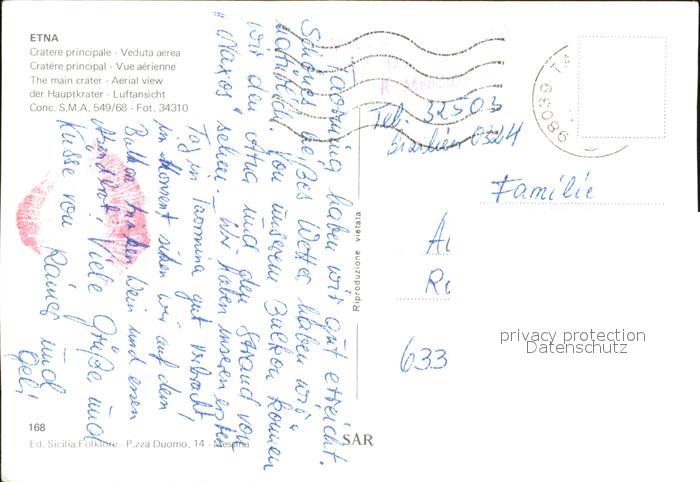 ETNA
Cratere principale - Veduta aerea
Cratère principal - Vue aérienne
The main crater - Aerial view
der Hauptkrater - Luftansicht
Conc. S.M.A. 549/68 - Fot. 34310
Taormina haben wir gut erreicht.
Schönes heißes Wetter haben wir
natürlich. Von unserem Balkon können
wir den Ätna und den Strand von
"Naxos" sehen. - Wir haben unseren ersten
Tag in Taormina gut verbracht
im Moment sitzen wir auf dem
Balkon trinken Wein und essen
Viele Grüße und
Küsse von Rainer und
Geli
Riproduzione vietata
98039 TA
Tel. 32503
0324
Familie
633
privacy protection
Datenschutz
168
Ed. Sicilia Folklore - P.zza Duomo, 14 - Messina
SAR